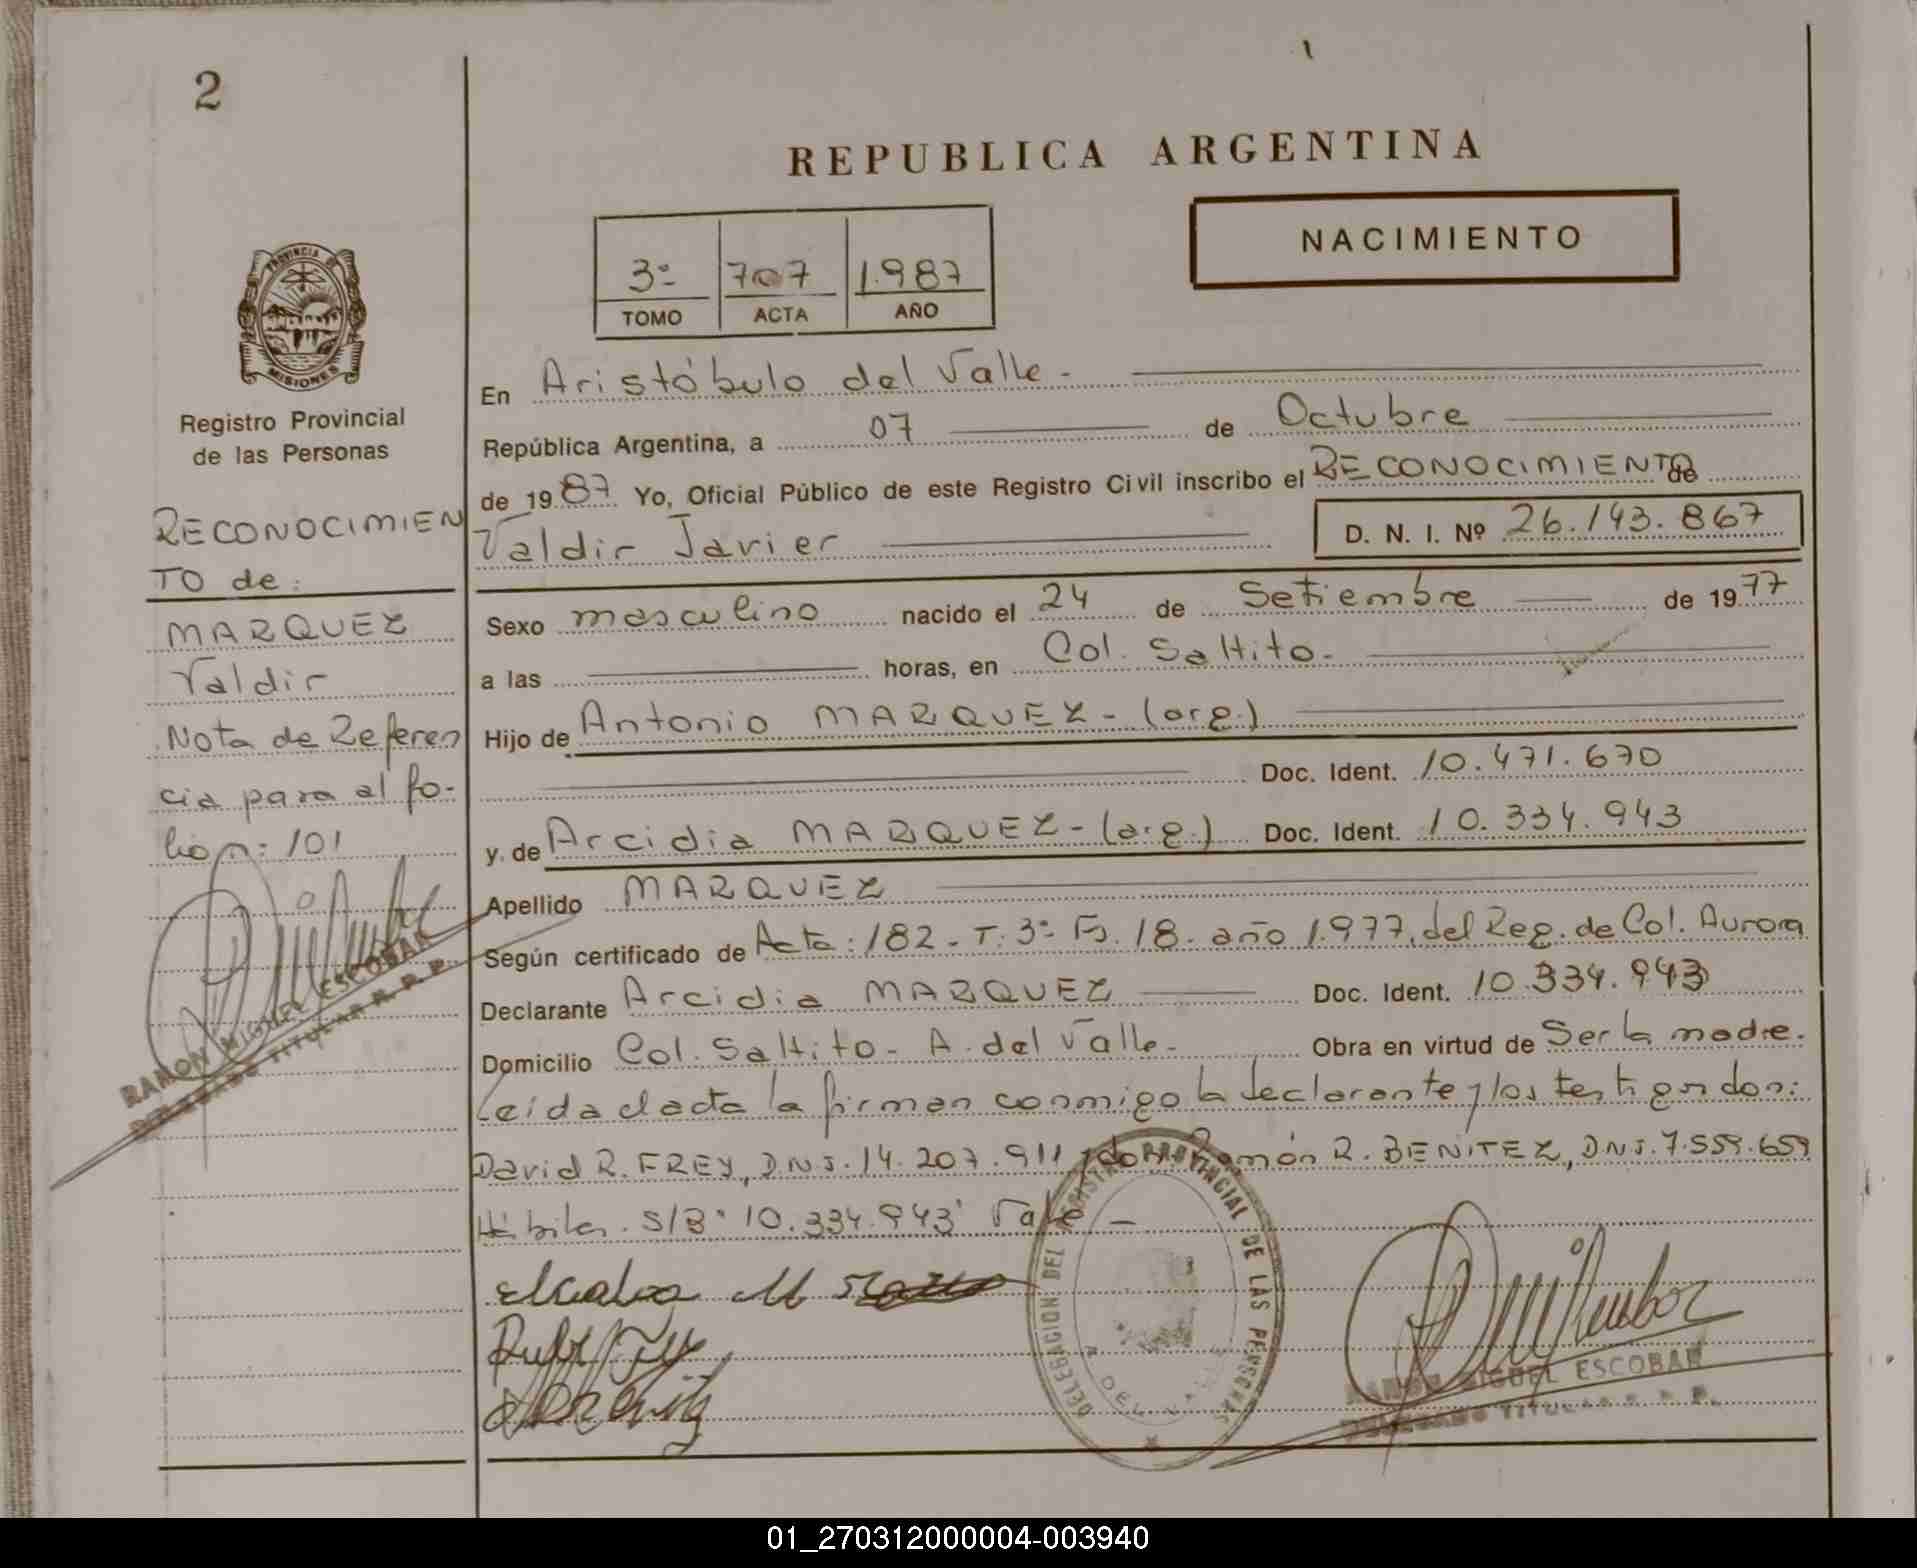 2
REPUBLICA ARGENTINA
NACIMIENTO
3º 707 1.987
TOMO ACTA AÑO
PROVINCIA DE MISIONES
Registro Provincial
de las Personas
RECONOCIMIEN
TO de:
MARQUEZ
Valdir
Nota de Referen
cia para al fo-
lio n: 101
RAMON MIGUEL ESCOBAR
DELEGADO TITULAR R. P. P.
En Aristóbulo del Valle -
República Argentina, a 07 de Octubre
de 1987 Yo, Oficial Público de este Registro Civil inscribo el RECONOCIMIENTO de
Valdir Javier D. N. I. Nº 26.143.867
Sexo masculino nacido el 24 de Setiembre de 1977
a las horas, en Col. Saltito.
Hijo de Antonio MARQUEZ - (arg.)
Doc. Ident. 10.471.670
y de Arcidia MARQUEZ - (arg.) Doc. Ident. 10.334.943
Apellido MARQUEZ
Según certificado de Acta: 182 - T. 3º Fo. 18 - año 1.977, del Reg. de Col. Aurora
Declarante Arcidia MARQUEZ Doc. Ident. 10.334.943
Domicilio Col. Saltito - A. del Valle - Obra en virtud de Ser la madre.
Leída el acta la firman conmigo la declarante y los testigos don:
David R. FREY, DNI. 14.207.911 y don Ramón R. BENITEZ, DNI. 7.559.659
Hábiles. S/B: "10.334.943" Vale -
DELEGACION DEL REGISTRO PROVINCIAL DE LAS PERSONAS
A. DEL VALLE
RAMON MIGUEL ESCOBAR
DELEGADO TITULAR R. P. P.
01_270312000004-003940